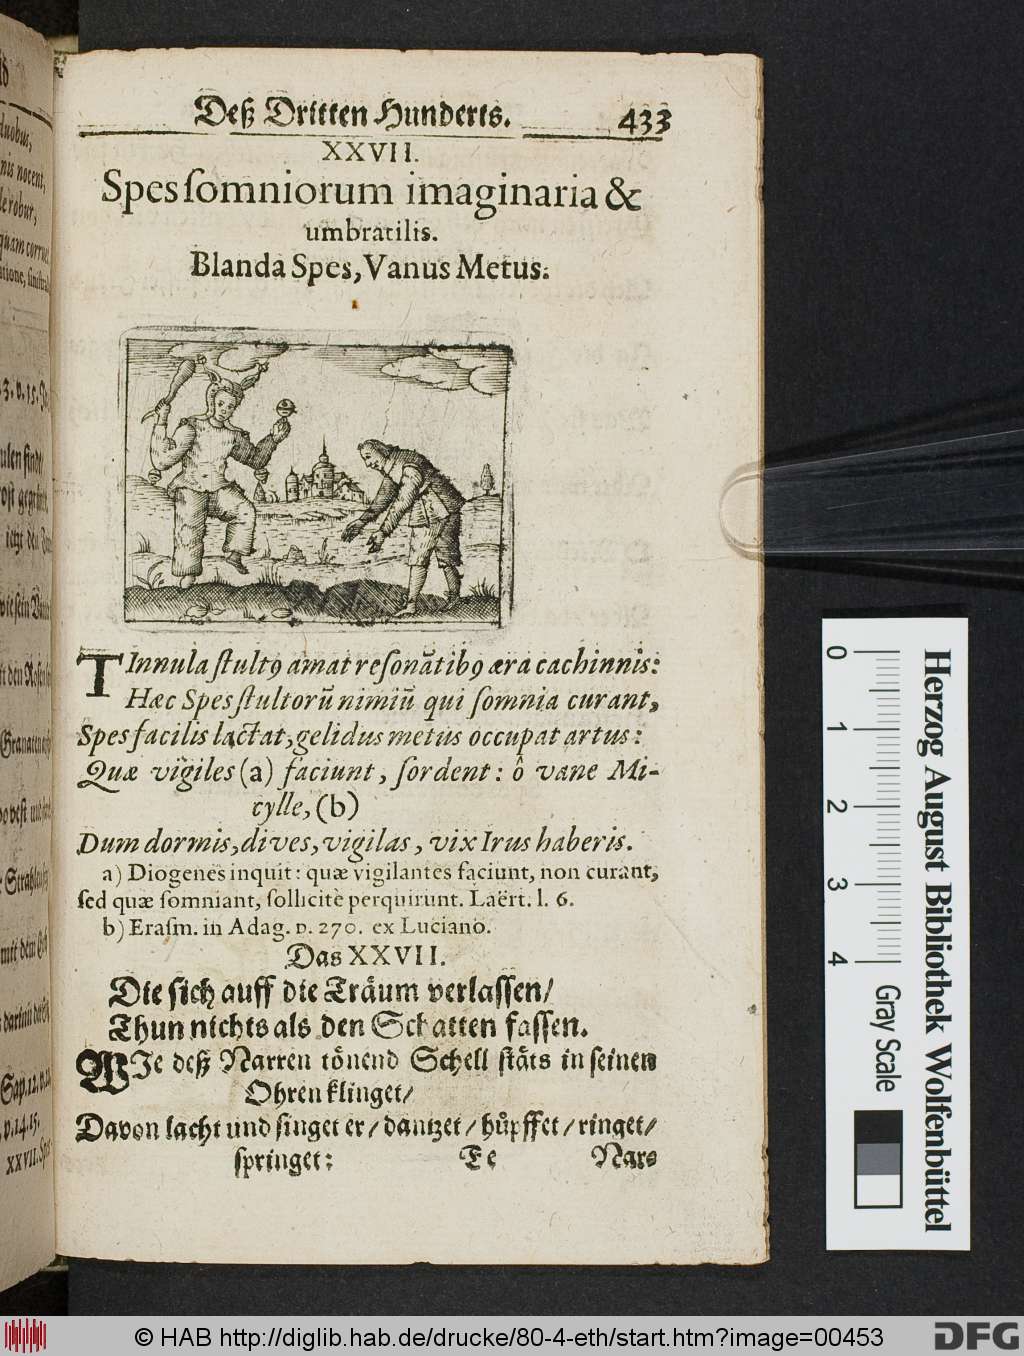 Deß Dritten Hunderts. 433
XXVII.
Spes ſomniorum imaginaria &
umbratilis.
Blanda Spes, Vanus Metus.
TInnula ſtultꝰ amat reſonātibꝰ æra cachinnis:
Hæc Spes ſtultorū nimiū qui ſomnia curant,
Spes facilis lactat, gelidus metus occupat artus:
Quæ vigiles (a) faciunt, ſordent: ô vane Mi-
cylle, (b)
Dum dormis, dives, vigilas, vix Irus haberis.
a) Diogenes inquit: quæ vigilantes faciunt, non curant,
ſed quæ ſomniant, ſollicitè perquirunt. Laërt. l. 6.
b) Eraſm. in Adag. p. 270. ex Luciano.
Das XXVII.
Die ſich auff die Träum verlaſſen/
Thun nichts als den Schatten faſſen.
WJe deß Narren tönend Schell ſtäts in ſeinen
Ohren klinget/
Davon lacht und ſinget er/ dantzet/ hüpffet/ ringet/
ſpringet:
Ee Nars
duobus,
nis nocent,
le robur,
quam corru
3. v. 15.
ulen finde
Sap. 12.
v. 14. 15.
XXVII. Spes
0 1 2 3 4
Gray Scale
Herzog August Bibliothek Wolfenbüttel
© HAB http://diglib.hab.de/drucke/80-4-eth/start.htm?image=00453
DFG